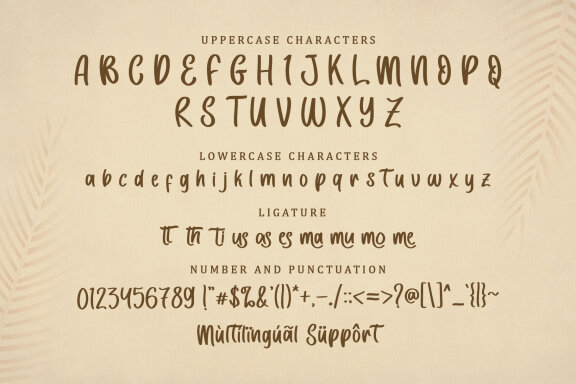 UPPERCASE CHARACTERS
A B C D E F G H I J K L M N O P Q
R S T U V W X Y Z
LOWERCASE CHARACTERS
a b c d e f g h i j k l m n o p q r s t u v w x y z
LIGATURE
tt th ti us as es ma mu mo me
NUMBER AND PUNCTUATION
0123456789 !"#$%&'()*+,-./:;<=>?@[\]^_`{|}~
Mùltílingúãl Süppôrt